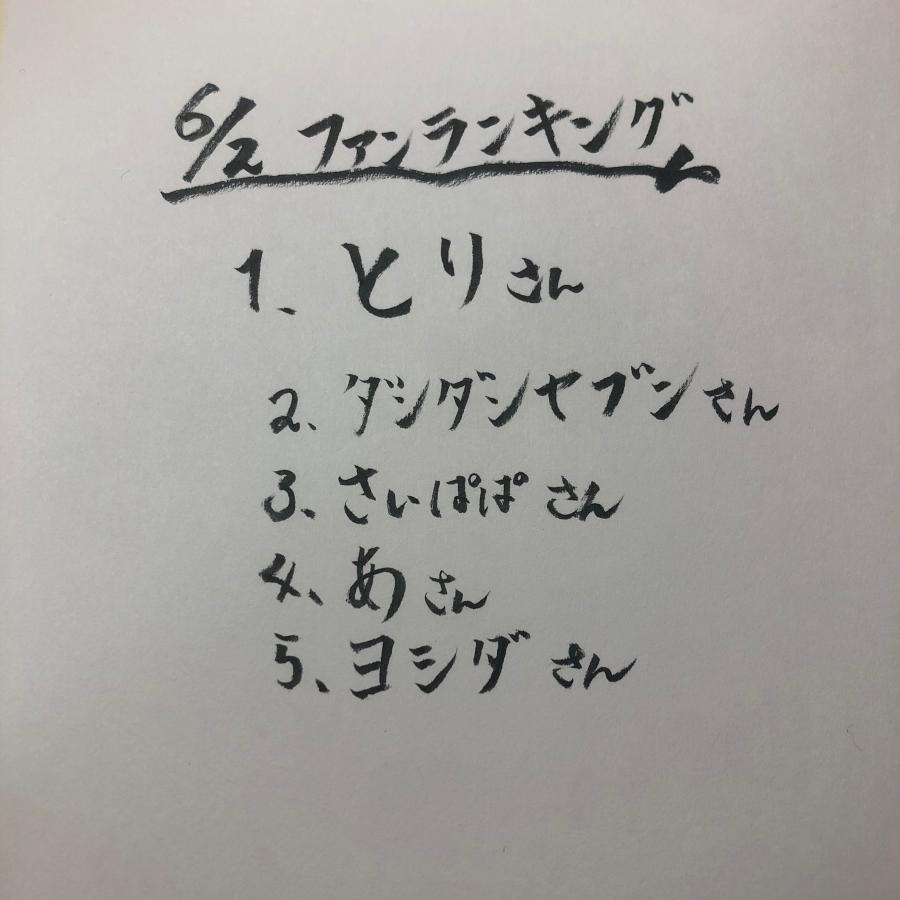 6/2 ファンランキング
1、とりさん
2、ダシダシセブンさん
3、さぃぱぱさん
4、あさん
5、ヨシダさん